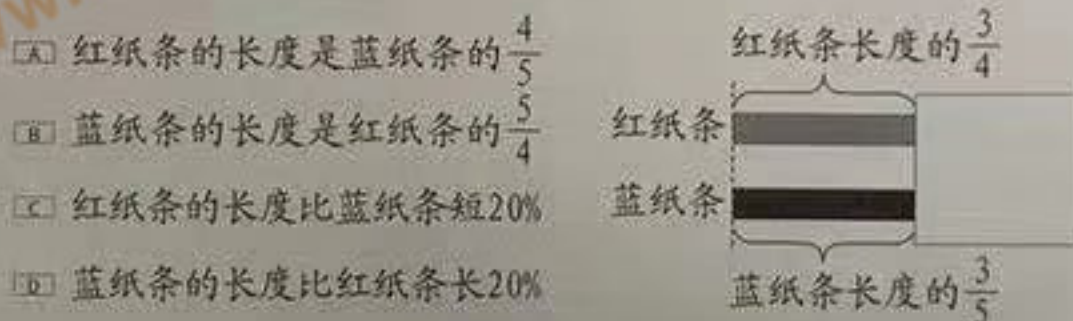 A 红纸条的长度是蓝纸条的4/5
B 蓝纸条的长度是红纸条的5/4
C 红纸条的长度比蓝纸条短20%
D 蓝纸条的长度比红纸条长20%
红纸条长度的3/4
红纸条
蓝纸条
蓝纸条长度的3/5